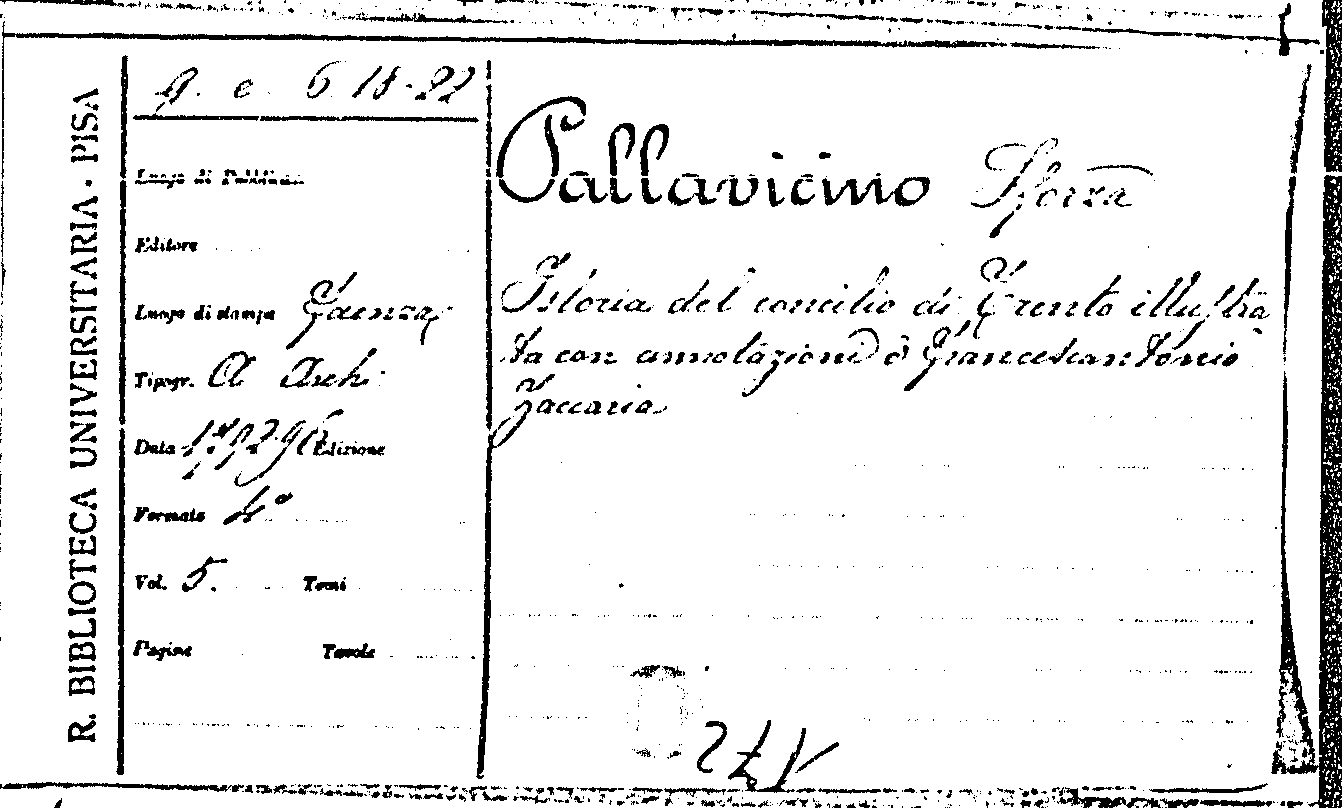 R. BIBLIOTECA UNIVERSITARIA - PISA
g. e. 6 18-22
Luogo di Pubblicaz.
Editore
Luogo di stampa Faenza
Tipogr. A Archi
Data 1792-96 Edizione
Formato 4º
Vol. 5. Tomi
Pagine Tavole
Pallavicino Sforza
Istoria del concilio di Trento illustra
ta con annotazioni d Francescantonio
Zaccaria